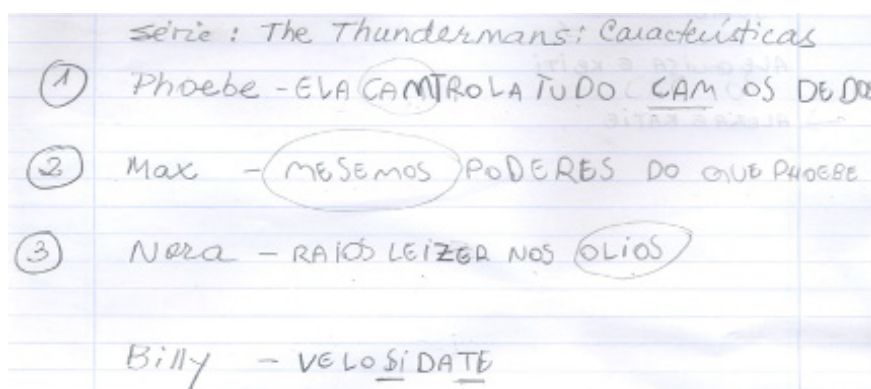 série: The Thundermans: Características
1 Phoebe - ELA CAMTROLA TUDO CAM OS DEDOS
2 Max - MESEMOS PODERES DO QUE PHOEBE
3 Nora - RAIOS LEIZER NOS OLIOS
Billy - VELOSIDATE